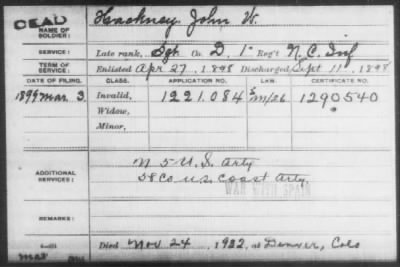 DEAD
NAME OF SOLDIER: Hackney, John W.
SERVICE: Late rank, Sgt Co. D, 1" Reg't N.C. Inf
TERM OF SERVICE: Enlisted Apr 27, 1898 Discharged Sept 11, 1898
DATE OF FILING. CLASS. APPLICATION NO. LAW. CERTIFICATE NO.
1899 Mar. 3. Invalid, 1221.084 1290540
Widow,
Minor,
ADDITIONAL SERVICES: M 5 U.S. Arty
58 Co U.S. Coast Arty
WAR WITH SPAIN
REMARKS:
Died Nov 24, 1932, at Denver, Colo